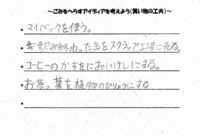 ～ごみをへらすアイディアを考えよう(買い物の工夫)～
・マイバックを使う。
・飲みおわった缶をスクラップ工場に売る。
・コーヒーのかすをにおいけしにする。
・お茶の葉を植物のひりょうにする。